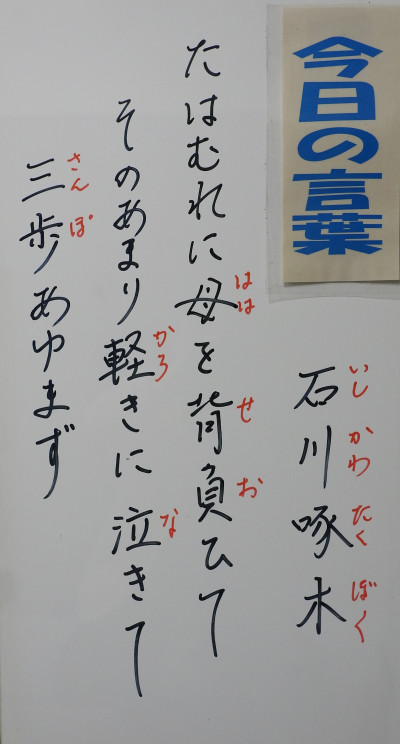 今日の言葉
石川啄木
いしかわたくぼく
たはむれに母を背負ひて
ははせお
そのあまり軽きに泣きて
かろな
三歩あゆまず
さんぽ